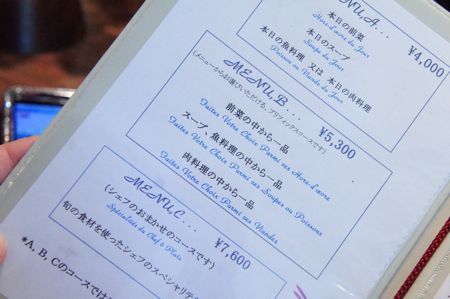 MENU,A... ¥4,000
本日の前菜
Hors-d'œuvre du Jour
本日のスープ
Soupe du Jour
本日の魚料理 又は 本日の肉料理
Poisson ou Viande du Jour
MENU,B... ¥5,300
(メニューからお選びいただける、プリフィックスコースです)
前菜の中から一品
Faites Votre Choix Parmi ses Hors d'œuvre
スープ、魚料理の中から一品
Faites Votre Choix Parmi ses Soupes ou Poissons
肉料理の中から一品
Faites Votre Choix Parmi ses Viandes
MENU,C... ¥7,600
(シェフのおまかせのコースです)
Spécialités du Chef à Plats
旬の食材を使ったシェフのスペシャリテ
*A, B, Cのコースでは